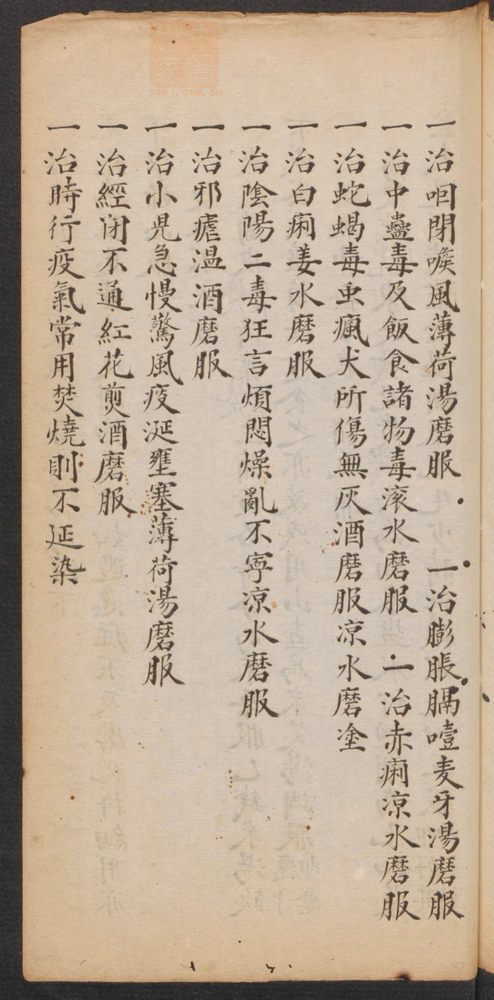 一治咽閉喉風薄荷湯磨服　一治膨脹膈噎麦牙湯磨服
一治中蠱毒及飯食諸物毒滚水磨服　一治赤痢凉水磨服
一治蛇蝎毒虫瘋犬所傷無灰酒磨服凉水磨塗
一治白痢姜水磨服
一治陰陽二毒狂言煩悶燥亂不寧凉水磨服
一治邪瘧温酒磨服
一治小児急慢驚風痰涎壅塞薄荷湯磨服
一治經闭不通紅花煎酒磨服
一治時行疫氣常用焚燒則不延染